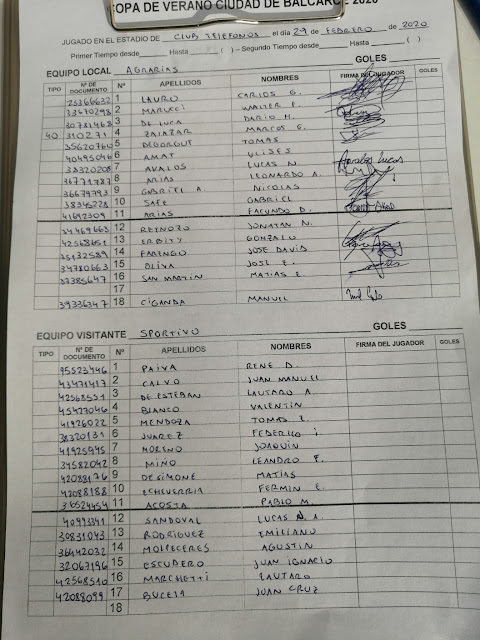 COPA DE VERANO CIUDAD DE BALCARCE 2020
JUGADO EN EL ESTADIO DE CLUB TELEFONOS el día 29 de FEBRERO de 2020
Primer Tiempo desde Hasta ( ) – Segundo Tiempo desde Hasta ( )
EQUIPO LOCAL AGRARIAS GOLES
TIPO Nº DE DOCUMENTO Nº APELLIDOS NOMBRES FIRMA DEL JUGADOR GOLES
25366632 1 LAURO CARLOS G.
33610298 2 MARUCCI WALTER F.
30781468 3 DE LUCA DARIO H.
40 310271 4 ZALAZAR MARCOS G.
35620760 5 TOMAS
40495046 6 AMAT ULISES
38320208 7 AVALOS LUCAS N. Avalos Lucas
36771787 8 ARIAS LEONARDO A.
36679793 9 GABRIEL A. NICOLAS
38316228 10 GABRIEL
41692309 11 ARIAS FACUNDO D.
34469663 12 REYNOZO JONATAN N.
42568651 13 GONZALO
35132589 14 FARINGO JOSE DAVID
34780663 15 OLIVA JOSE E.
37385647 16 SAN MARTIN MATIAS E.
17
39336347 18 CIGANDA MANUEL
EQUIPO VISITANTE SPORTIVO GOLES
TIPO Nº DE DOCUMENTO Nº APELLIDOS NOMBRES FIRMA DEL JUGADOR GOLES
95523446 1 PAIVA RENE D.
43471417 2 CALVO JUAN MANUEL
42568551 3 DE ESTEBAN LAUTARO A.
45427046 4 BLANCO VALENTIN
41926022 5 MENDOZA TOMAS E.
38320131 6 JUAREZ FEDERICO i
41925945 7 MORENO JOAQUIN
34582042 8 MIÑO LEANDRO E.
42088176 9 DESIMONE MATIAS
42088188 10 ECHEVERRIA FERMIN E.
36524454 11 ACOSTA PABLO M.
40993341 12 SANDOVAL LUCAS A.
30831043 13 RODRIGUEZ EMILIANO
36442032 14 MOLPECERES AGUSTIN
32067196 15 ESCUDERO JUAN IGNACIO
42568510 16 MARCHETTI LAUTARO
42088099 17 JUAN CRUZ
18